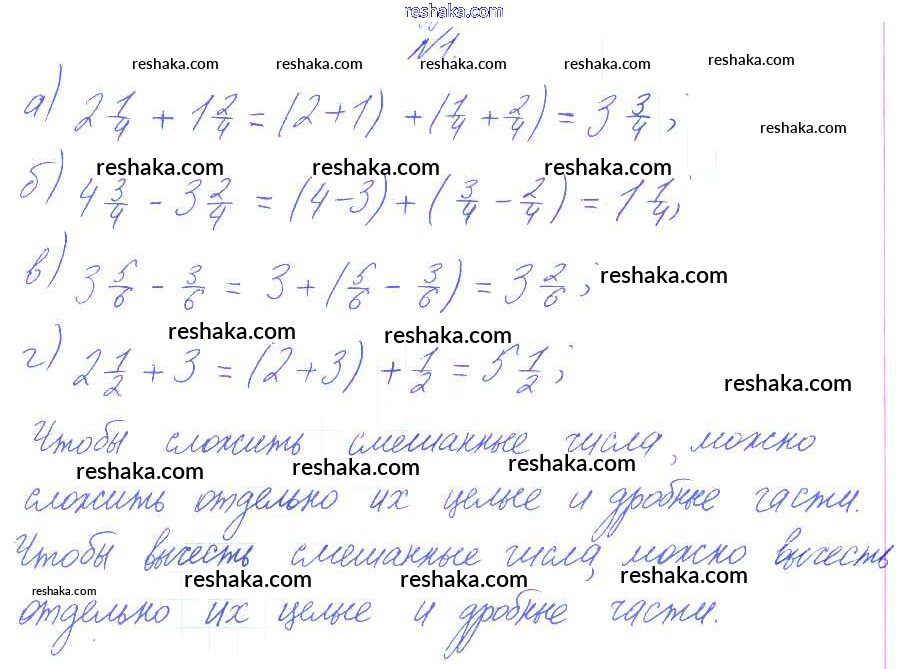 reshaka.com
№1.
reshaka.com reshaka.com reshaka.com reshaka.com reshaka.com
а) 2 1/4 + 1 2/4 = (2+1) + (1/4 + 2/4) = 3 3/4;
reshaka.com
reshaka.com reshaka.com reshaka.com
б) 4 3/4 - 3 2/4 = (4-3) + (3/4 - 2/4) = 1 1/4;
в) 3 5/6 - 3/6 = 3 + (5/6 - 3/6) = 3 2/6;
reshaka.com
reshaka.com reshaka.com
г) 2 1/2 + 3 = (2+3) + 1/2 = 5 1/2;
reshaka.com
Чтобы сложить смешанные числа, можно
reshaka.com reshaka.com reshaka.com
сложить отдельно их целые и дробные части.
Чтобы вычесть смешанные числа, можно вычесть
reshaka.com reshaka.com reshaka.com reshaka.com
отдельно их целые и дробные части.